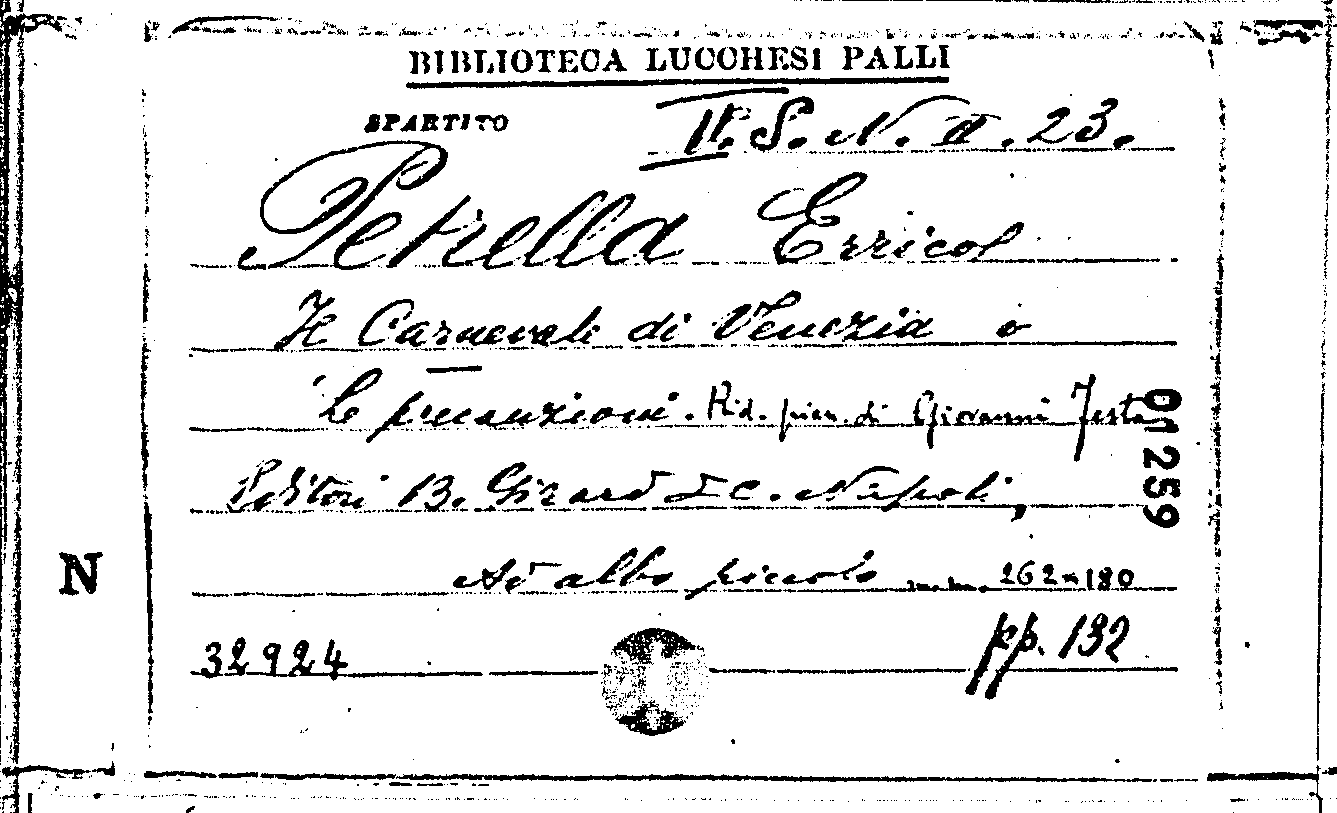 BIBLIOTECA LUCCHESI PALLI
SPARTITO
II. S. N. II. 23.
Petrella Errico
Il Carnevale di Venezia o
Le precauzioni. Rid. pian. di Giovanni Testa
01259
Editori B. Girard & C. Napoli,
N
Ad albo piccolo m.m. 262x180
32924
pp. 132